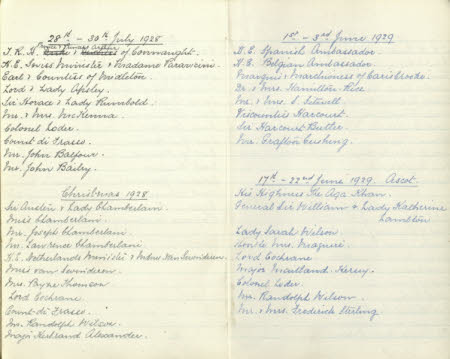 28th - 30th July 1928
Prince & Princess Arthur
T.R.H. of Connaught.
H.E. Swiss Minister & Madame Paravicini
Earl & Countess of Midleton.
Lord & Lady Apsley.
Sir Horace & Lady Rumbold.
Mr. & Mrs. McKenna.
Colonel Loder.
Count di Frasso.
Mr. John Balfour.
Mr. John Bailey.
Christmas 1928
Sir Austen & Lady Chamberlain.
Miss Chamberlain.
Mr. Joseph Chamberlain.
Mr. Lawrence Chamberlain.
H.E. Netherlands Minister & Mdme Van Swinderen.
Miss van Swinderen.
Mrs. Payne Thomson
Lord Cochrane
Count di Frasso.
Mr. Randolph Wilson.
Major Alexander.
1st - 3rd June 1929
H.E. Spanish Ambassador.
H.E. Belgian Ambassador.
Marquis & Marchioness of Carisbrooke.
Dr. & Mrs. Hamilton Rice
Mr. & Mrs. S. Sitwell.
Viscountess Harcourt.
Sir Harcourt Butler.
Mr. Grafton Cushing.
17th - 22nd June 1929. Ascot.
His Highness The Aga Khan.
General Sir William & Lady Katherine
Lambton
Lady Sarah Wilson.
Honble Mrs. Maguire.
Lord Cochrane
Major Maitland Kersey.
Colonel Loder.
Mr. Randolph Wilson.
Mr. & Mrs. Frederick Sterling